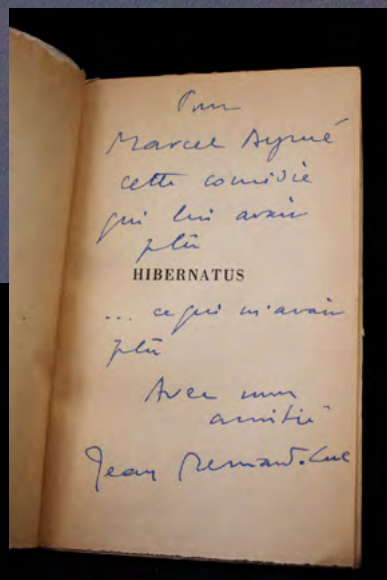 Pour
Marcel Aymé
cette comédie
qui lui avait
plû
HIBERNATUS
... ce qui m'avait
plû
Avec mon
amitié
Jean Bernard-Luc